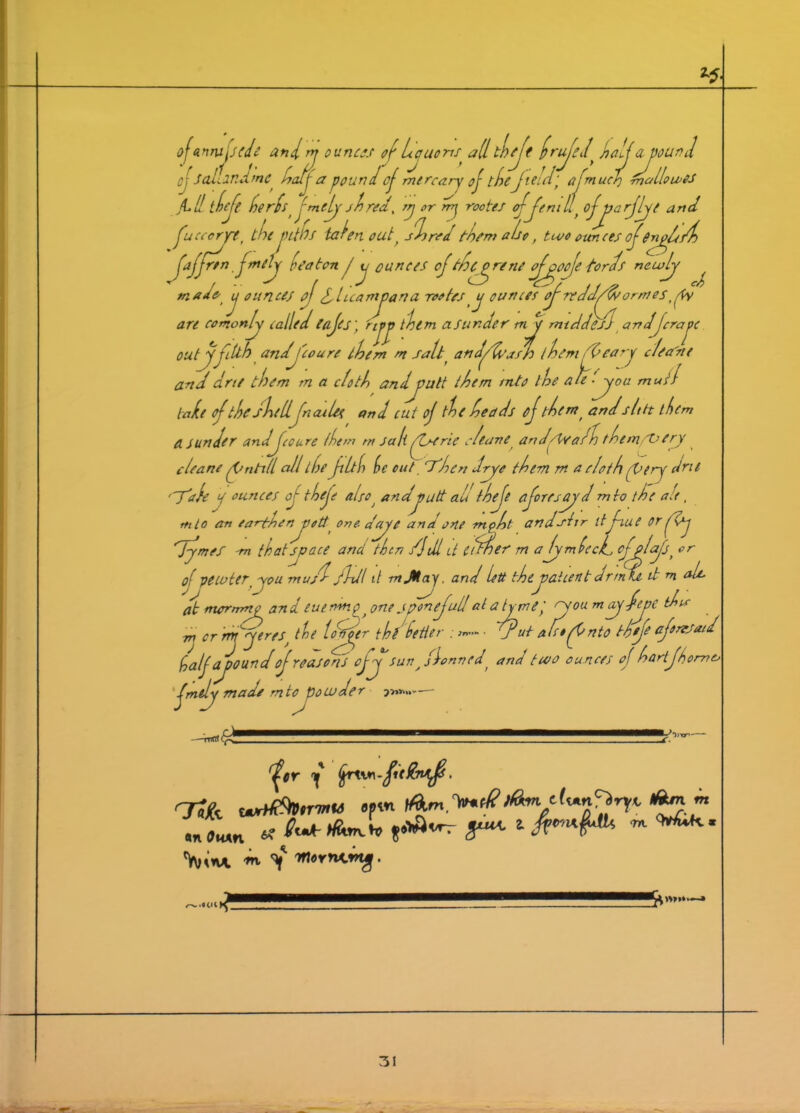 25.
of annisseede and iij ounces of Liquoris all these brused, half a pound
of sallandine half a pound of mercary of the field, asmuch mallowes
All these herbs smely shred, iij or iiij rootes of fenill, of parslye and
succorye, the piths taken out, shred them also, two ounces of english
saffren smely beaton / ij ounces of the grene of goose tords newly
made, ij ounces of Elicampana rootes, ij ounces of redd wormes, wch
are comonly called eases; ripp them asunder in ye middest, and scrape
out ye filth, and scoure them in salt, and wash them veary cleane
and drie them in a cloth and putt them into the ale: you must
take of the shell snailes and cut of the heads of them, and slitt them
asunder and scoure them in salt verie cleane, and wash them very
cleane vntill all the filth be out, Then drye them in a cloth very drie
Take ij ounces of these also, and putt all these aforesayd into the ale,
into an earthen pott one daye and one night and stir it fiue or vj
Tymes in that space and then still it either in a lymbeck, of glass, or
of pewter, you must still it in May. and lett the patient drinke it in ale
at morning and euening, one sponefull at a tyme; you may kepe this
iij or iiij yeres, the longer the better : Put also vnto these aforesaid
half a pound of reasons of ye sun, stonned, and two ounces of hartshorne
smely made into powder
for ye
Take earthwormes open them, wash them cleane, drye them in
an Ouen & beat them to powder giue 2 spoonefulls in White
Wine in ye Morning.
31